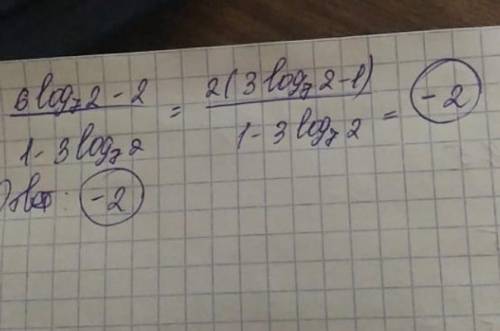 6 log₇2 - 2 / 1 - 3 log₇2 = 2(3 log₇2 - 1) / 1 - 3 log₇2 = -2
Ответ: -2